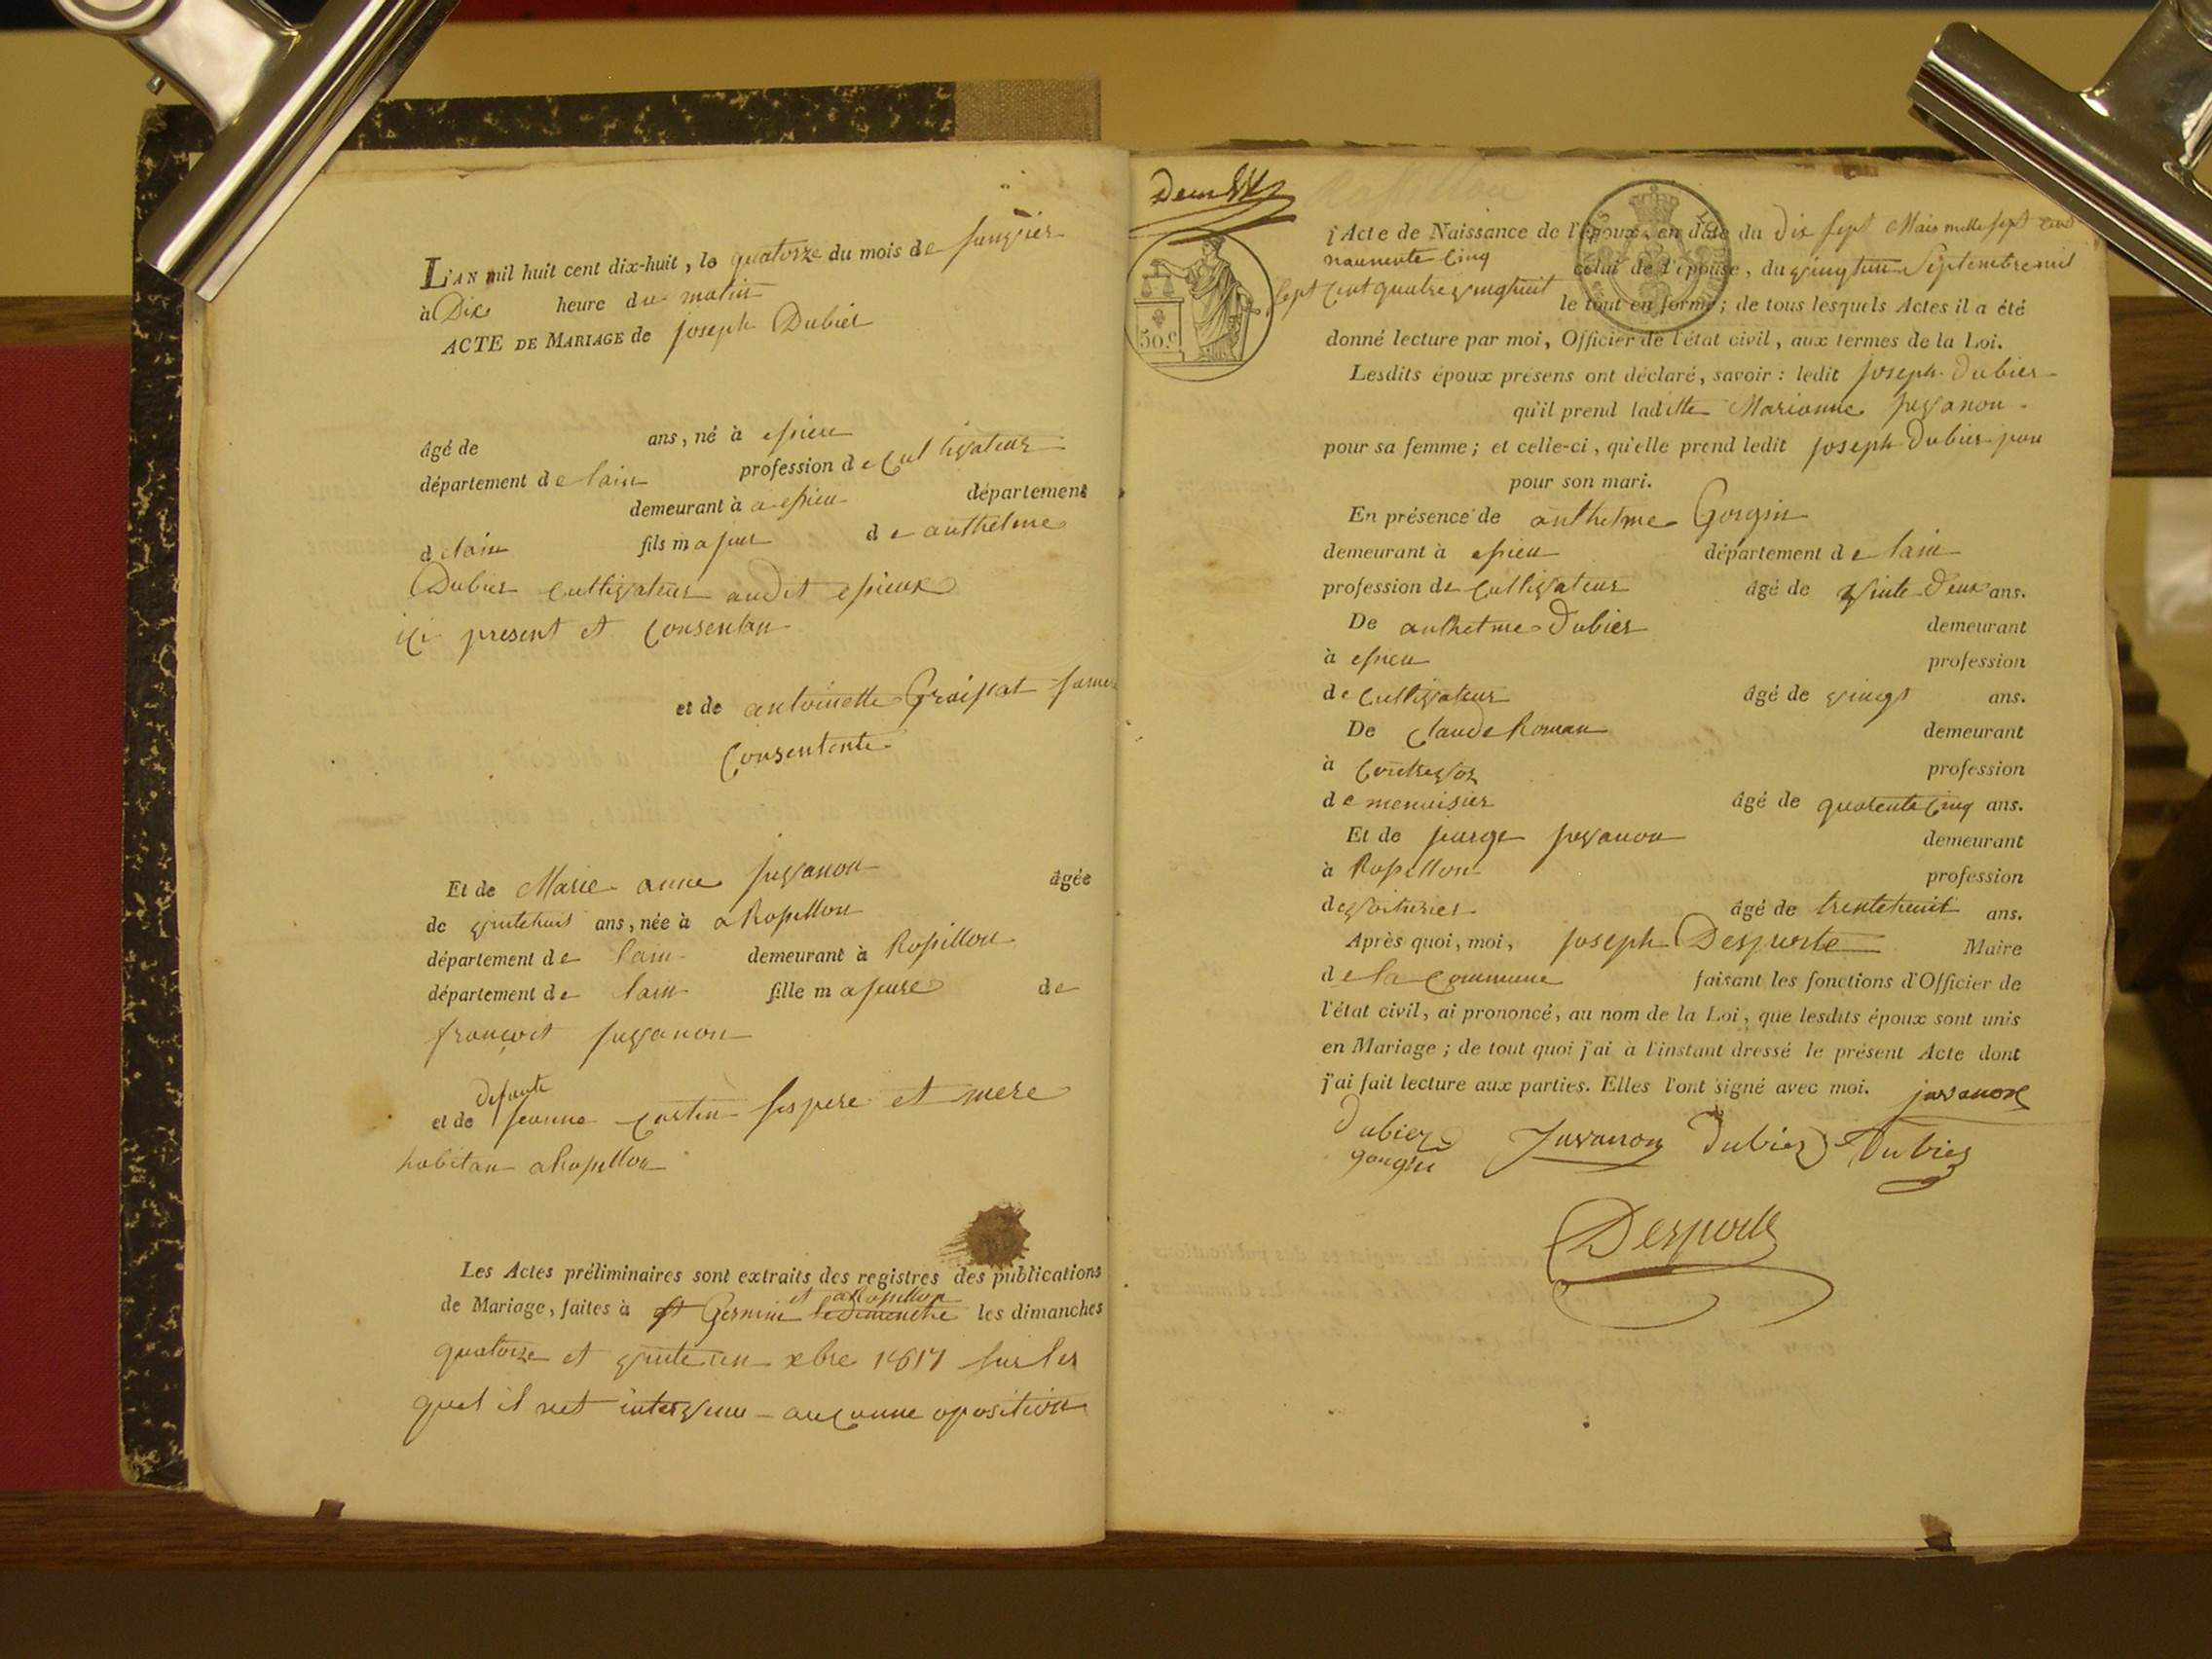 L'AN mil huit cent dix-huit, le quatorze du mois de janvier
à Dix heure du matin
ACTE DE MARIAGE de joseph Dubier
âgé de ans, né à espieu
département de lain profession de Cultivateur
demeurant à a espieu département
delain fils majeur de anthelme
Dubier Cultivateur audit espieux
ici present et Consentan
et de antoinette
Consentente
Et de Marie anne juvanon âgée
de vintehuit ans, née à a Rosillon
département de lain demeurant à Rosillon
département de lain fille majeure de
françoit juvanon
defunte
et de jeanne ses pere et mere
habitan a Rosillon
Les Actes préliminaires sont extraits des registres des publications
et a Rosillon
de Mariage, faites à st Germin ledimenche les dimanches
quatorze et vinteun xbre 1817 sur les
quel il net intervenu aucunne oposition
Rossillon
l'Acte de Naissance de l'époux, en date du Dix sept Mars mille sept cent
naunente Cinq celui de l'épouse, du vingtun Septembre mil
sept Cent quatre vingthuit le tout en forme; de tous lesquels Actes il a été
50 c
donné lecture par moi, Officier de l'état civil, aux termes de la Loi.
Lesdits époux présens ont déclaré, savoir: ledit joseph Dubier
qu'il prend laditte Marianne juvanon
pour sa femme; et celle-ci, qu'elle prend ledit joseph Dubier pou
pour son mari.
En présence de anthelme Gongin
demeurant à espieu département de lain
profession de Cultivateur âgé de vinte Deux ans.
De anthelme Dubier demeurant
à espieu profession
de Cultivateur âgé de vingt ans.
De Claude Roman demeurant
à Contrevoz profession
de menuisier âgé de quarente Cinq ans.
Et de jeorge juvanon demeurant
à Rosillon profession
de voiturier âgé de trentehuit ans.
Après quoi, moi, joseph Desporte Maire
de la Commune faisant les fonctions d'Officier de
l'état civil, ai prononcé, au nom de la Loi, que lesdits époux sont unis
en Mariage; de tout quoi j'ai à l'instant dressé le présent Acte dont
j'ai fait lecture aux parties. Elles l'ont signé avec moi. juvanon
Dubier Juvanon Dubier Dubier
gongin
Desporte